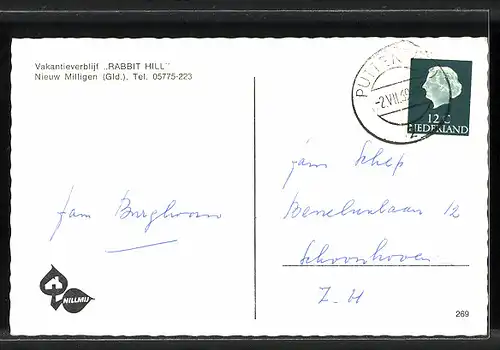 Vakantieverblijf „RABBIT HILL"
Nieuw Milligen (Gld.), Tel. 05775-223
PUTTEN
-2.VII.
12 C
NEDERLAND
fam
fam Schep
12
Schoonhoven
Z-H
HILLMIJ
269